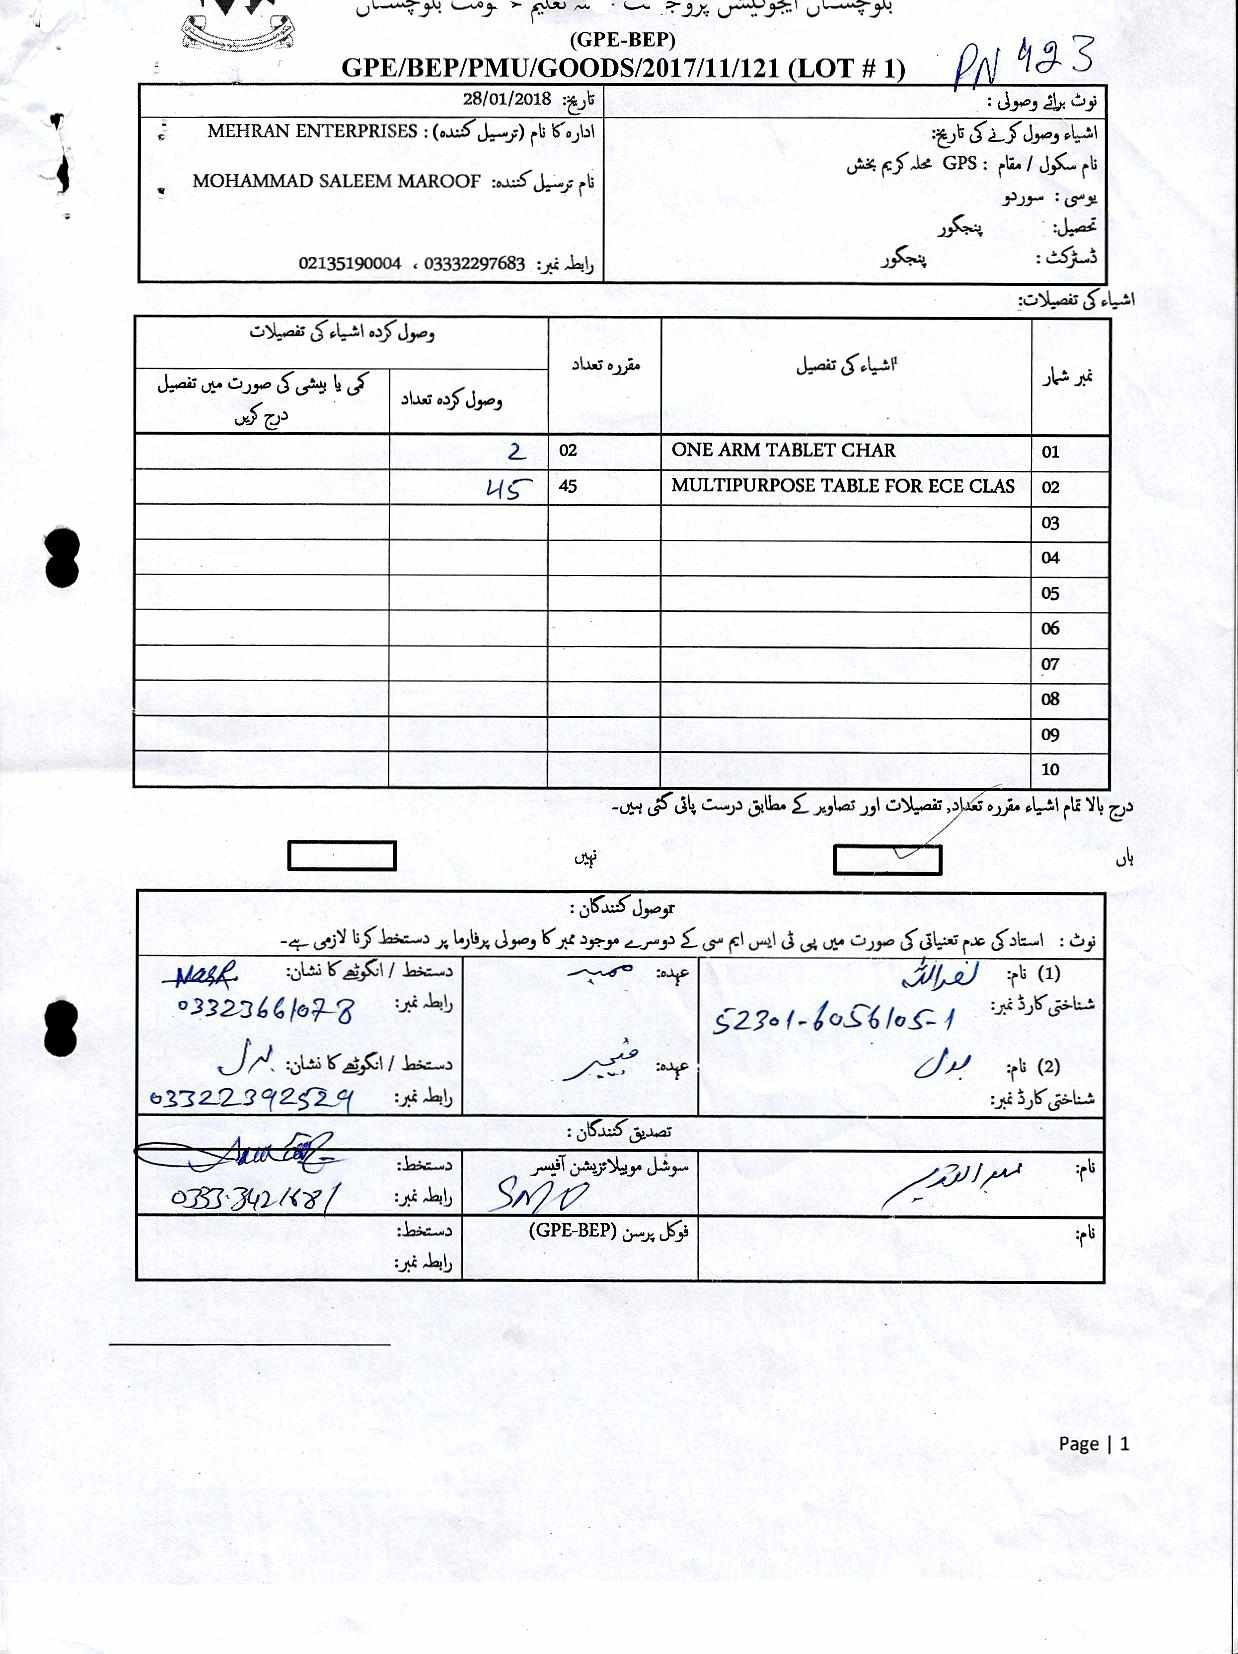 بلوچستان ایجوکیشن پروجیکٹ
(GPE-BEP)
GPE/BEP/PMU/GOODS/2017/11/121 (LOT # 1)
PN 423
نوٹ برائے وصولی :
تاریخ: 28/01/2018
اشیاء وصول کرنے کی تاریخ:
ادارہ کا نام (ترسیل کنندہ) : MEHRAN ENTERPRISES
نام سکول / مقام : GPS محلہ کریم بخش
نام ترسیل کنندہ: MOHAMMAD SALEEM MAROOF
یوسی : سوردو
تحصیل: پنجگور
ڈسٹرکٹ : پنجگور
رابطہ نمبر: 03332297683 ، 02135190004
اشیاء کی تفصیلات:
نمبر شمار
اشیاء کی تفصیل
مقررہ تعداد
وصول کردہ اشیاء کی تفصیلات
وصول کردہ تعداد
کمی یا بیشی کی صورت میں تفصیل
درج کریں
01 ONE ARM TABLET CHAR 02 2
02 MULTIPURPOSE TABLE FOR ECE CLAS 45 45
03
04
05
06
07
08
09
10
درج بالا تمام اشیاء مقررہ تعداد, تفصیلات اور تصاویر کے مطابق درست پائی گئی ہیں۔
ہاں
نہیں
توصول کنندگان :
نوٹ : استاد کی عدم تعیناتی کی صورت میں پی ٹی ایس ایم سی کے دوسرے موجود ممبر کا وصولی پرفارما پر دستخط کرنا لازمی ہے۔
(1) نام: نصراللہ
عہدہ: ممبر
دستخط / انگوٹھے کا نشان: NASR
شناختی کارڈ نمبر: 52301-6056105-1
رابطہ نمبر: 03323661078
(2) نام: بدل
عہدہ:
دستخط / انگوٹھے کا نشان: بدل
شناختی کارڈ نمبر:
رابطہ نمبر: 03322392529
تصدیق کنندگان :
نام: عبدالقدیر
سوشل موبیلائزیشن آفیسر
SMO
دستخط:
رابطہ نمبر: 0333-3421681
نام:
فوکل پرسن (GPE-BEP)
دستخط:
رابطہ نمبر:
Page | 1